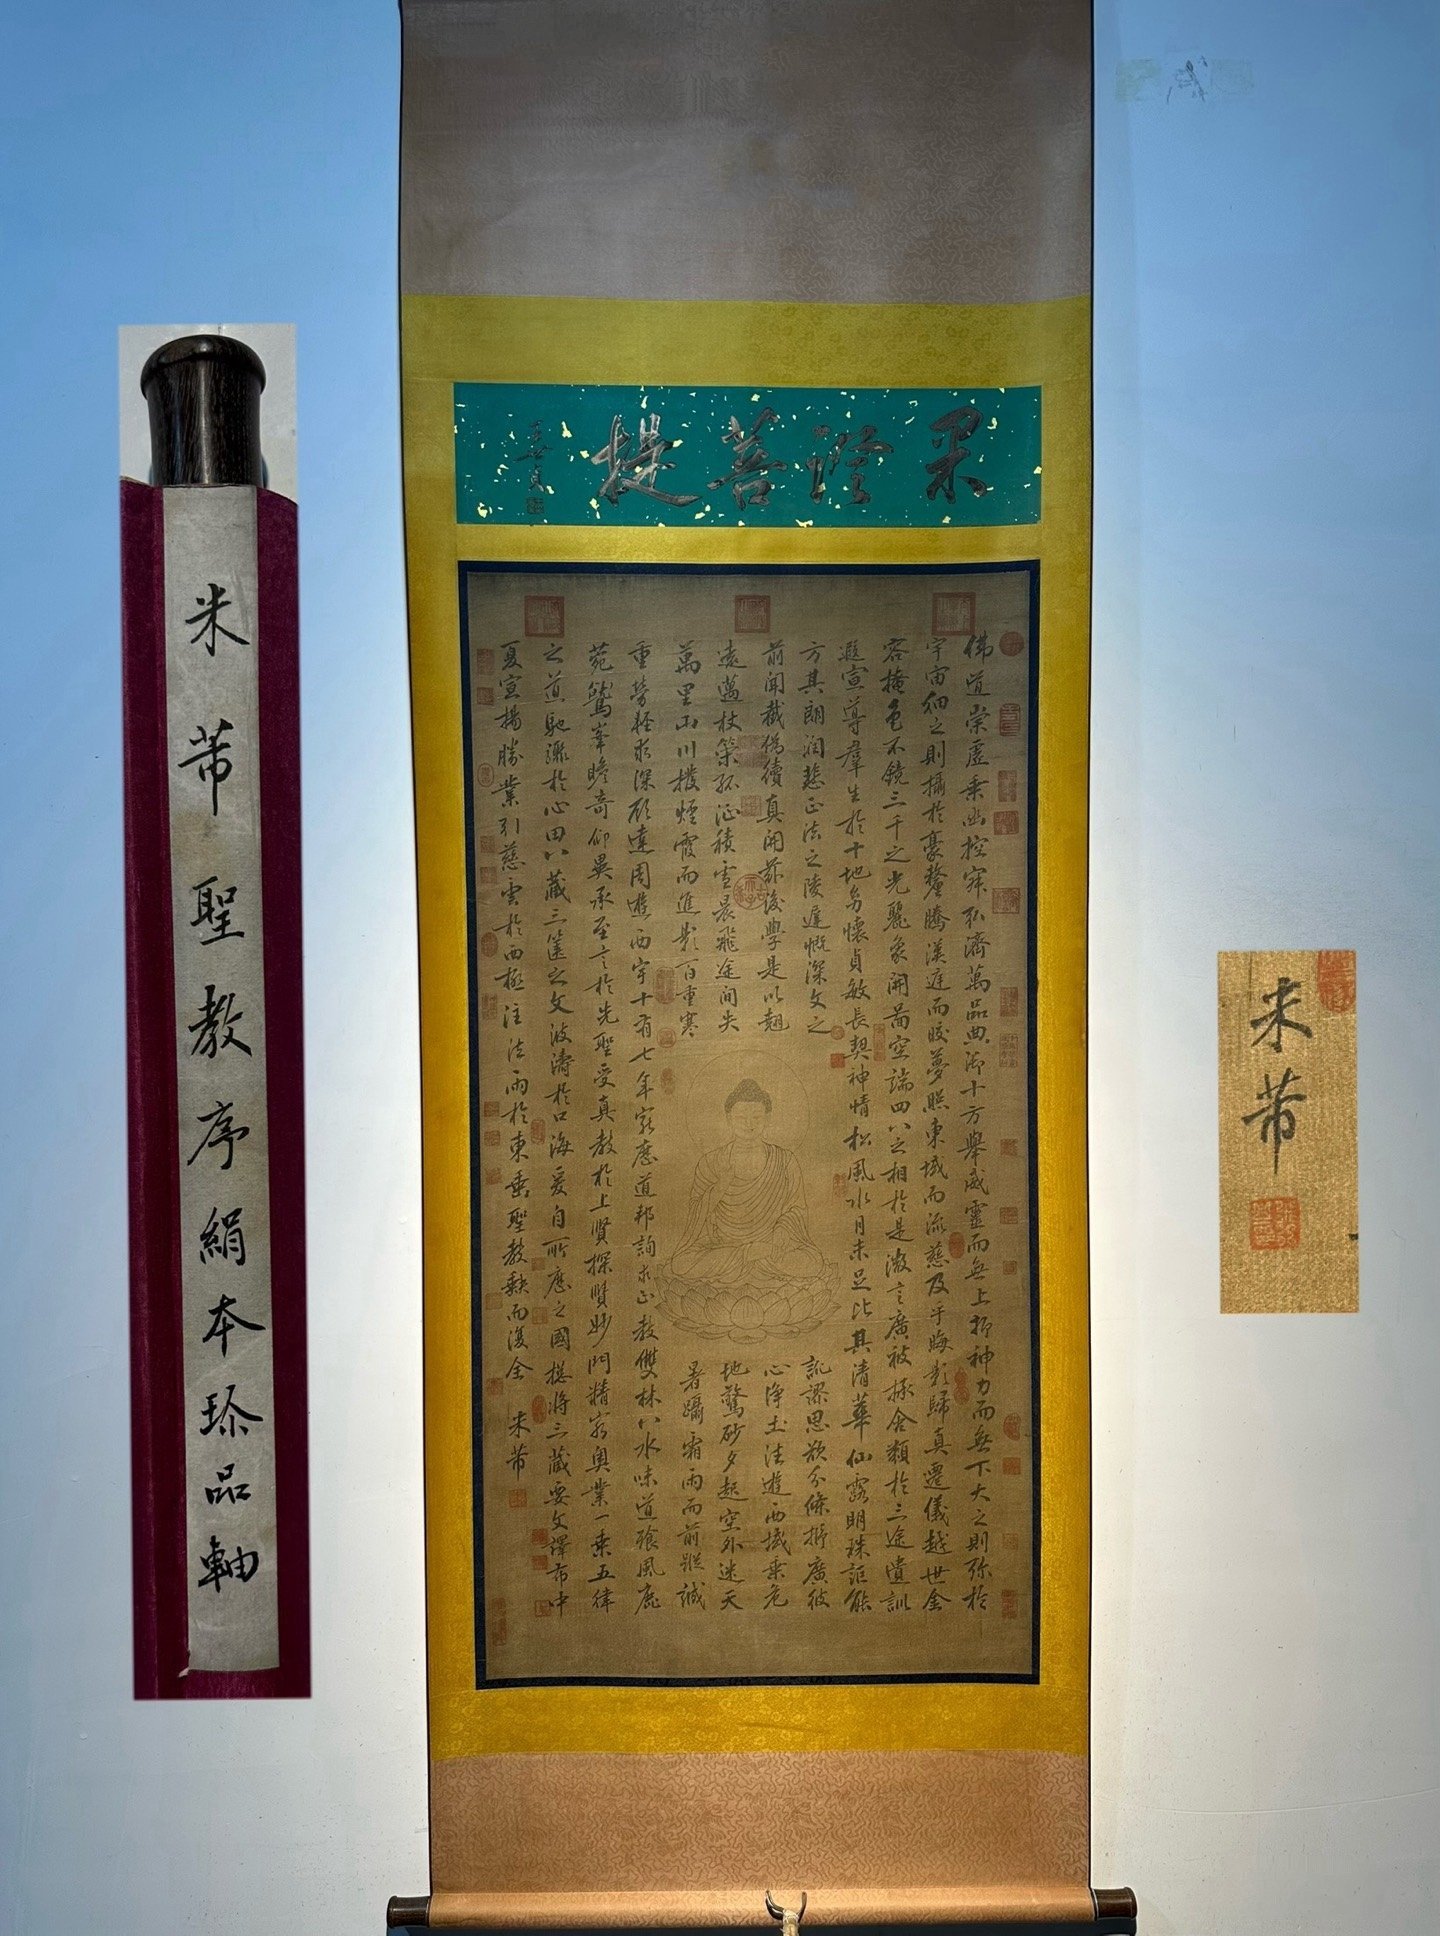 果證菩提
佛道崇虛乘幽控寂弘濟萬品典御十方舉威靈而無上抑神力而無下大之則彌於
宇宙細之則攝於豪釐騰漢庭而皎夢照東域而流慈及乎晦影歸真遷儀越世金
容掩色不鏡三千之光麗象開圖空端四八之相於是微言廣被拯含類於三途遺訓
遐宣導群生於十地多懷貞敏長契神情松風水月未足比其清華仙露明珠詎能
方其朗潤慈正法之陵遲慨深文之訛謬思欲分條析廣彼
前聞截偽續真開茲後學是以翹心淨土法遊西域乘危
遠邁杖策孤征積雪晨飛途間失地驚砂夕起空外迷天
萬里山川撥煙霞而進影百重寒暑躡霜雨而前蹤誠
重勞輕求深願達周遊西宇十有七年窮歷道邦詢求正教雙林八水味道飡風鹿
菀鷲峯瞻奇仰異承至言於先聖受真教於上賢探賾妙門精窮奧業一乘五律
之道馳驟於心田八藏三篋之文波濤於口海爰自所歷之國揔將三藏要文譯布中
夏宣揚勝業引慈雲於西極注法雨於東垂聖教缺而復全 米芾
米芾聖教序絹本珍品軸
米芾